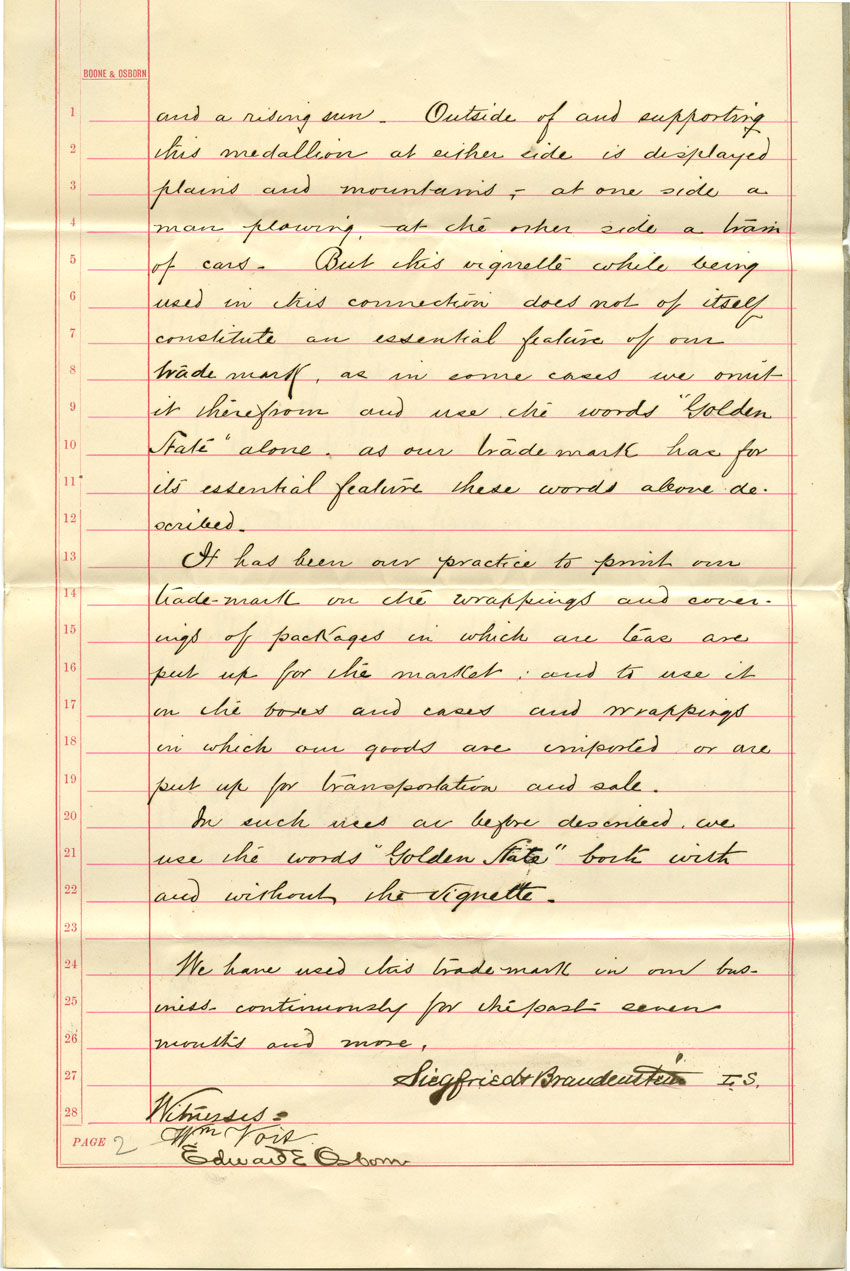 BOONE & OSBORN
1 and a rising sun - Outside of and supporting
2 this medallion at either side is displayed
3 plains and mountains, - at one side a
4 man plowing, at the other side a train
5 of cars - But this vignette while being
6 used in this connection does not of itself
7 constitute an essential feature of our
8 trade mark, as in some cases we omit
9 it therefrom and use the words "Golden
10 State" alone. as our trade mark has for
11 its essential feature these words above de-
12 scribed.
13 It has been our practice to print our
14 trade-mark on the wrappings and cover-
15 ings of packages in which are teas are
16 put up for the market; and to use it
17 on the boxes and cases and wrappings
18 in which our goods are imported or are
19 put up for transportation and sale.
20 In such uses as before described, we
21 use the words "Golden State" both with
22 and without the vignette.
23
24 We have used this trade-mark in our bus-
25 iness continuously for the past seven
26 months and more.
27 Siegfried & Brandenstein L.S.
28 Witnesses =
Wm Voit
PAGE 2
Edward E Osborn